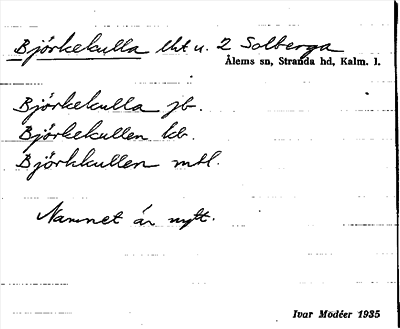 Björkekulla lht u. 2 Solberga
Ålems sn, Stranda hd, Kalm. l.
Björkekulla jb.
Björkekullen kb.
Björkkullen mtl.
Namnet är nytt.
Ivar Modéer 1935